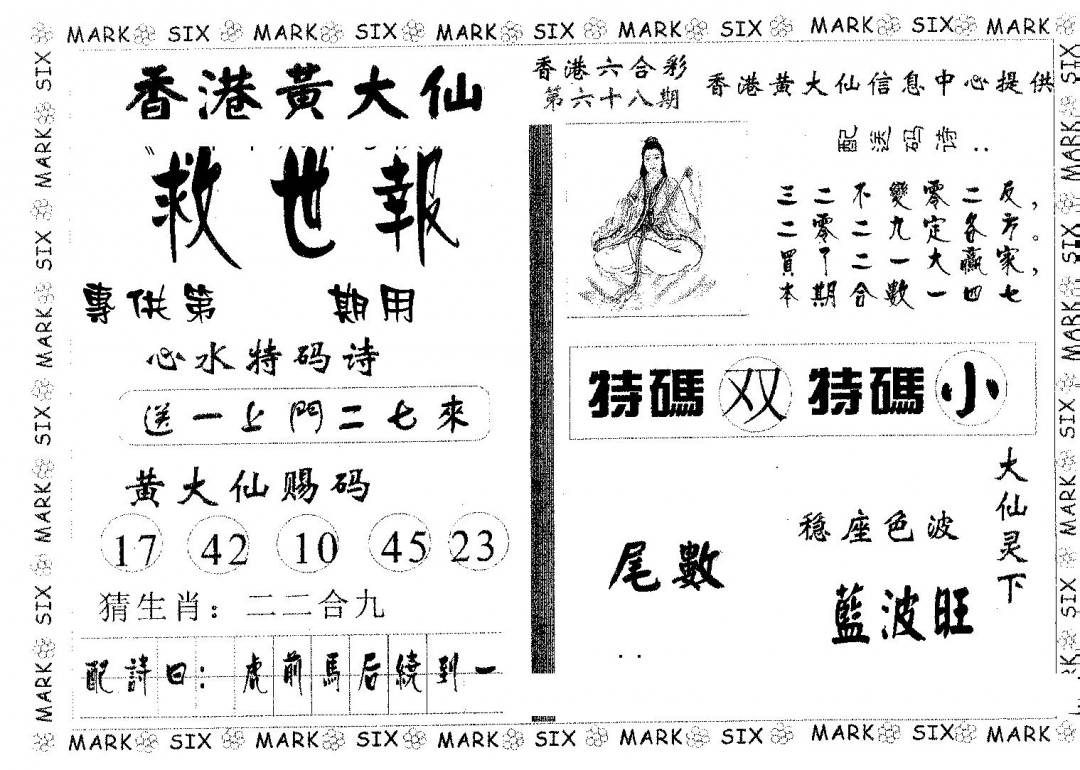 MARK SIX MARK SIX MARK SIX MARK SIX MARK SIX MARK
香港黃大仙
救世報
專供第 期用
心水特码诗
送一上門二七來
黄大仙赐码
17 42 10 45 23
猜生肖：二二合九
配詩曰：虎前馬后繞到一
香港六合彩
第六十八期
香港黄大仙信息中心提供
配送码诗：
三二不變零二反，
二零二九定各方。
買了二一大赢家，
本期合數一四七
特碼双 特碼小
尾數
稳座色波
藍波旺
大仙灵下
MARK SIX MARK SIX MARK SIX MARK SIX MARK SIX MARK
SIX MARK SIX MARK SIX MARK SIX MARK
SIX MARK SIX MARK SIX MARK SIX MARK